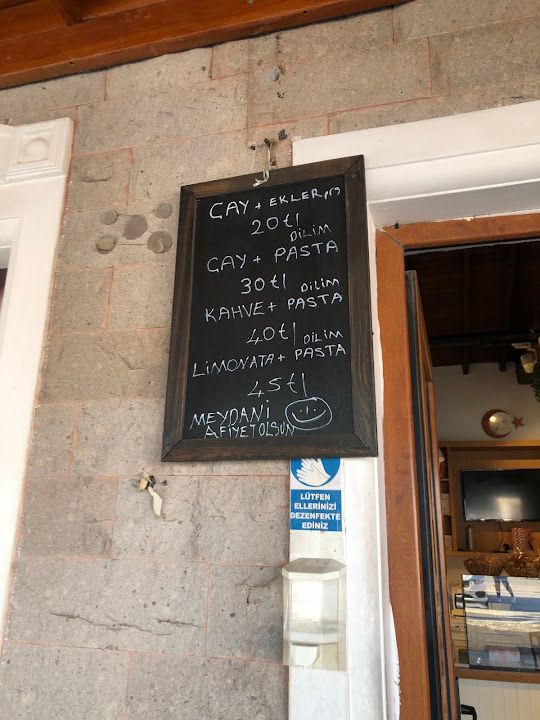 ÇAY + EKLER prş
20 tl
DİLİM
ÇAY + PASTA
30 tl DİLİM
KAHVE + PASTA
40 tl DİLİM
LİMONATA + PASTA
45 tl
MEYDANİ
AFİYET OLSUN
LÜTFEN
ELLERİNİZİ
DEZENFEKTE
EDİNİZ